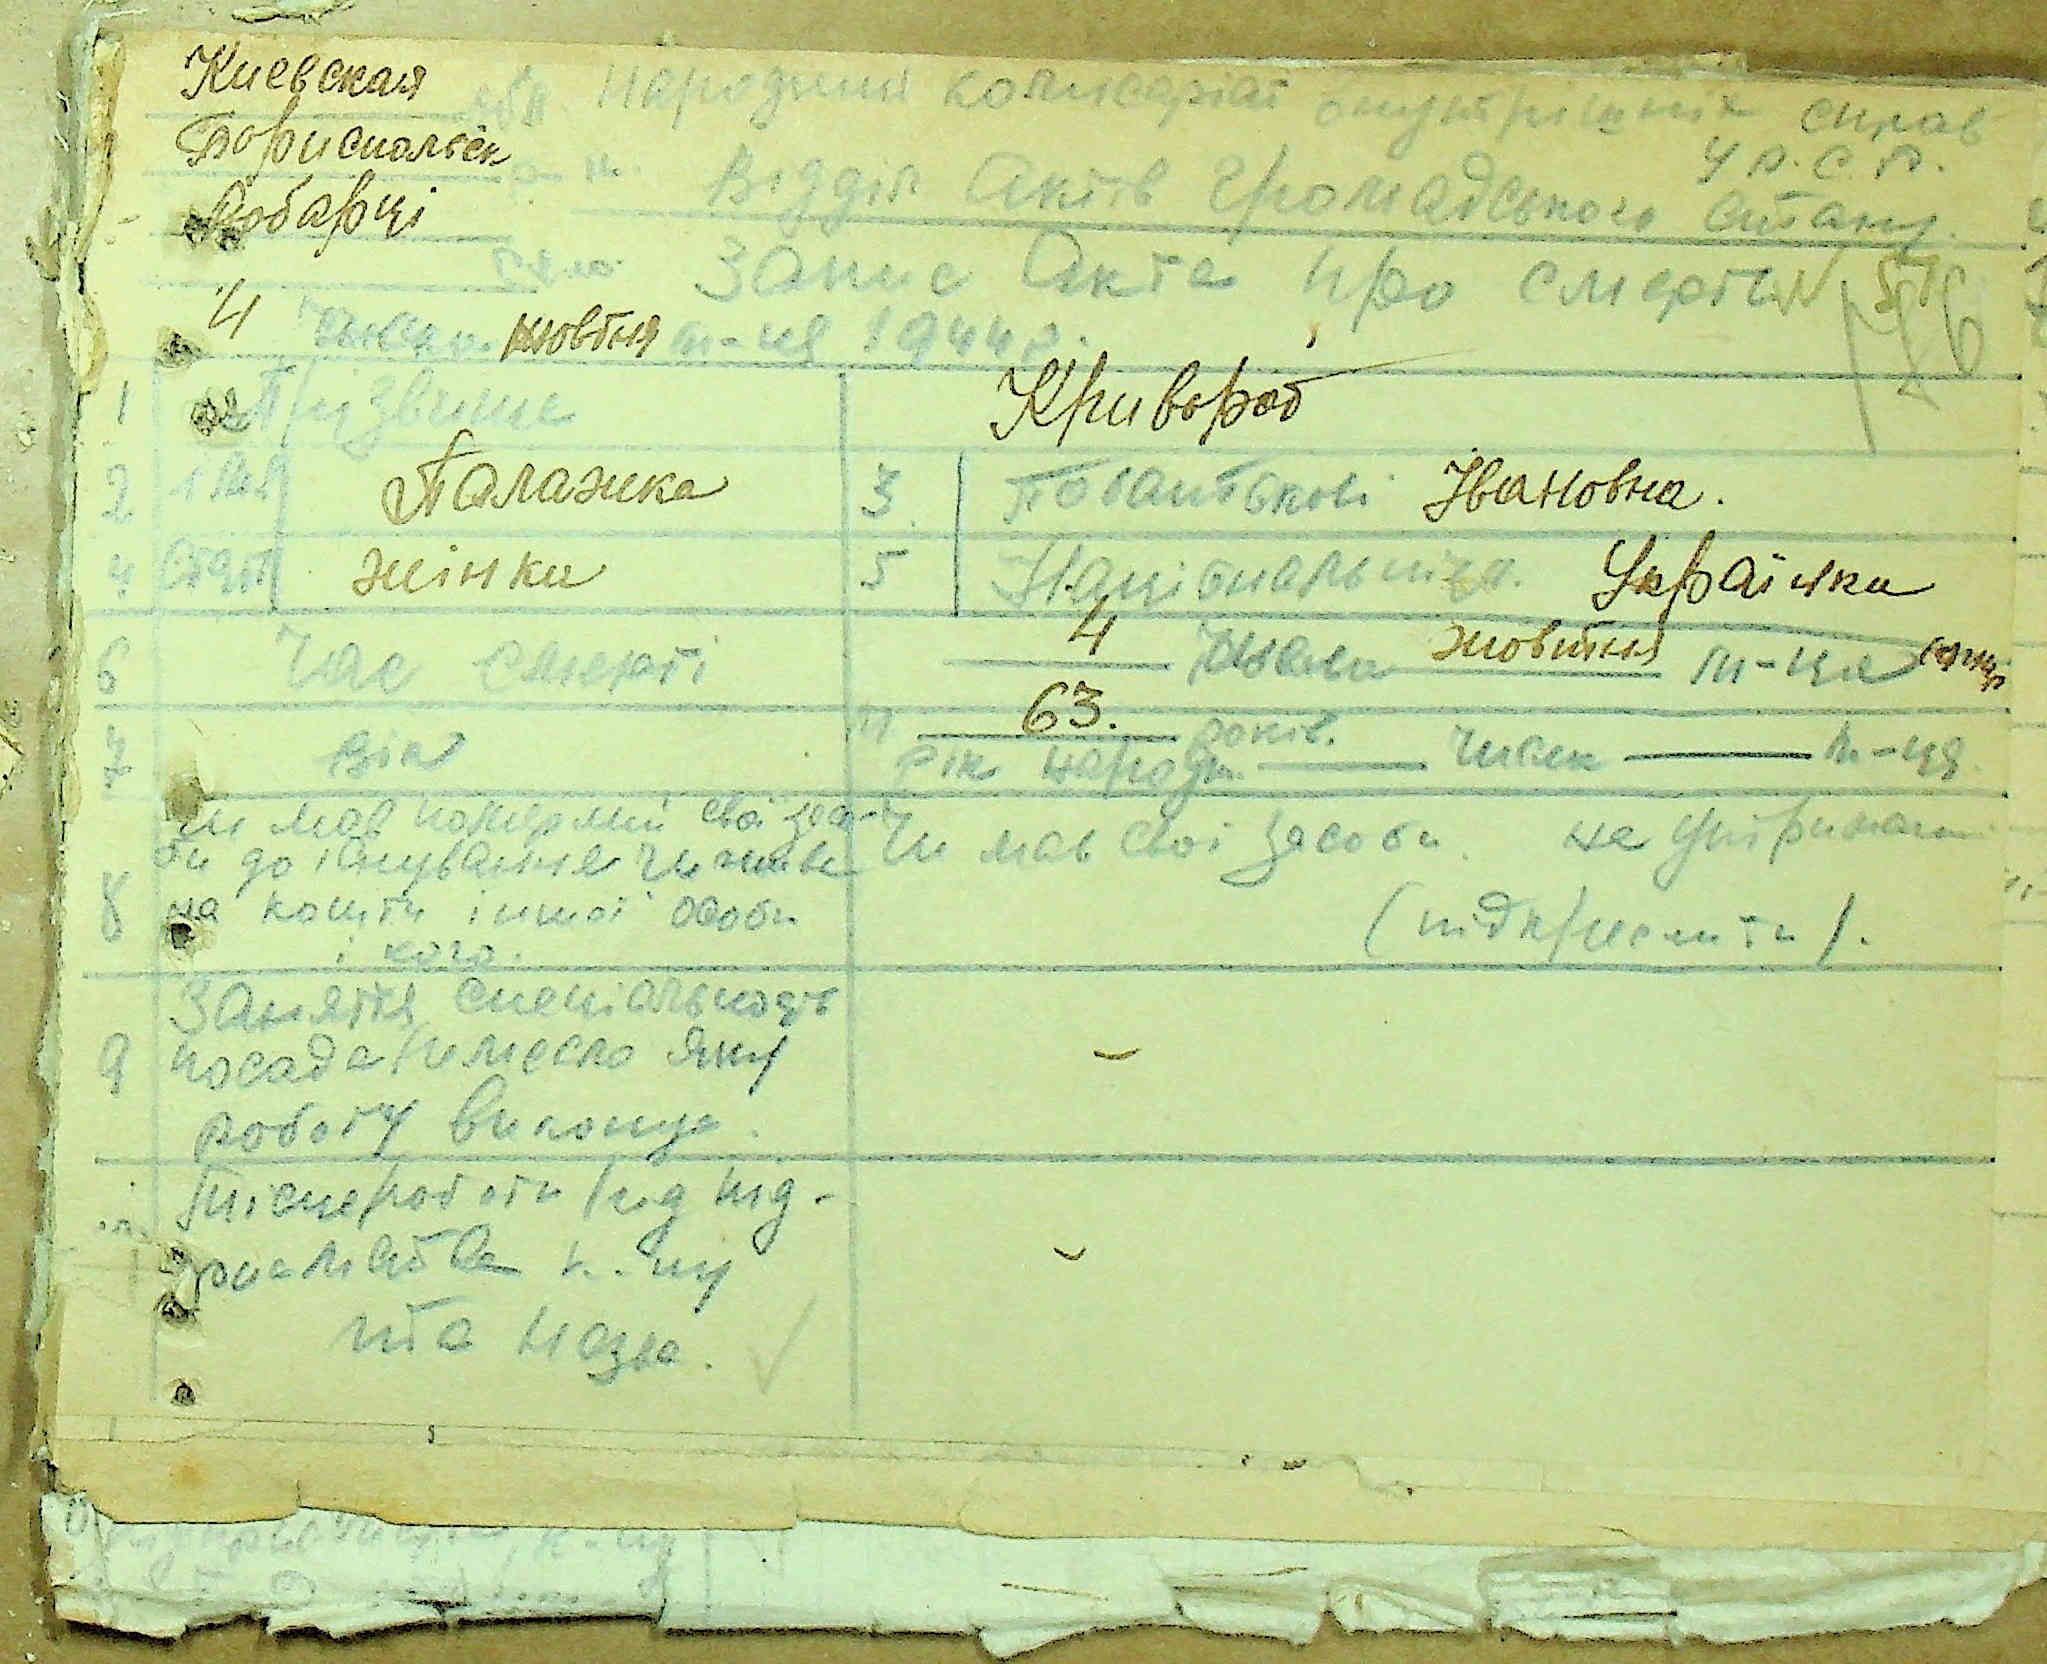 Киевская обл. Народний комисаріат внутрішніх справ
У.Р.С.Р.
Бориспольськ р-н. Відділ Актів Громадського Стану.
село Запис Акта про смерть № 51
4 числа жовтня м-ця 1944 р.
1 Прізвище Кривороб
2 Імя Палажка 3 По батькові Івановна.
4 Стать жінки 5 Національність. Українки
6 Час смерті 4 числа жовтня м-ця
7 Вік 63. років.
рік народж. — числа — м-ця.
8 Чи мав померлий свої засо-
би до існування чи жив
на кошти іншої особи
і кого.
Чи мав свої засоби. на утриманні
(підкреслити).
9 Заняття спеціальность
посада ремесло яку
роботу виконує.
-
Місце роботи
та назва.
-